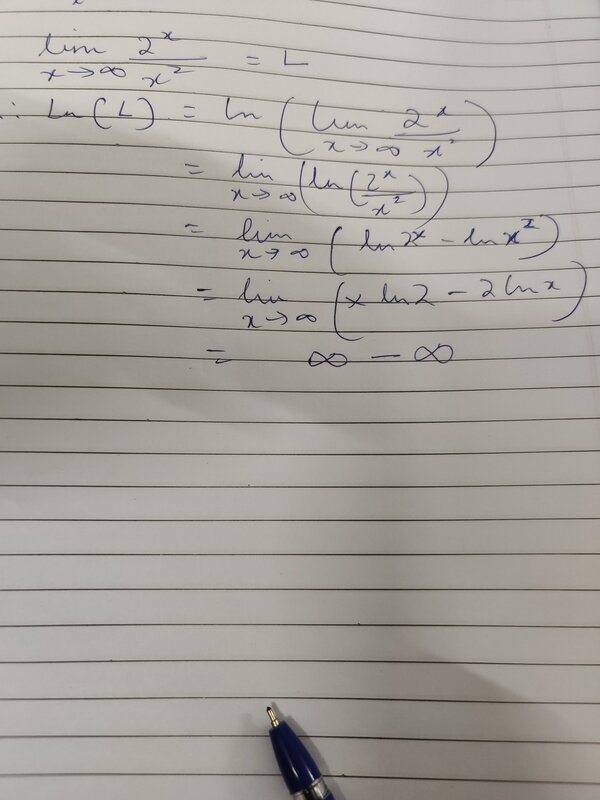 lim x→∞ 2^x / x^2 = L
∴ Ln(L) = ln ( lim x→∞ 2^x / x^2 )
= lim x→∞ ( ln ( 2^x / x^2 ) )
= lim x→∞ ( ln 2^x - ln x^2 )
= lim x→∞ ( x ln 2 - 2 ln x )
= ∞ - ∞